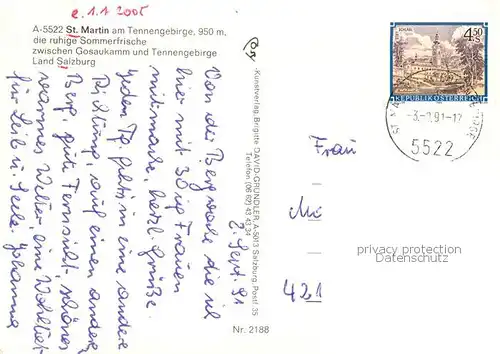 e. 1.1 2005
A-5522 St. Martin am Tennengebirge, 950 m,
die ruhige Sommerfrische
zwischen Gosaukamm und Tennengebirge
Land Salzburg
2. Sept. 91
Von der Bergwoche die ich
hier mit 30 Frauen
mitmache, herzl. Grüße.
Jeden Tg. geht's in eine andere
Richtung, auf einen anderen
Berg, gute Fernsicht - schönes
warmes Wetter, eine Wohltat
für Leib u. Seele. Johanna
Kunstverlag Brigitte DAVID-GRÜNDLER, A-5013 Salzburg, Postf. 35
Telefon (06 62) 43 43 34
Nr. 2188
4.50
REPUBLIK ÖSTERREICH
-3.-9.91-12
5522
Frau
421
privacy protection
Datenschutz